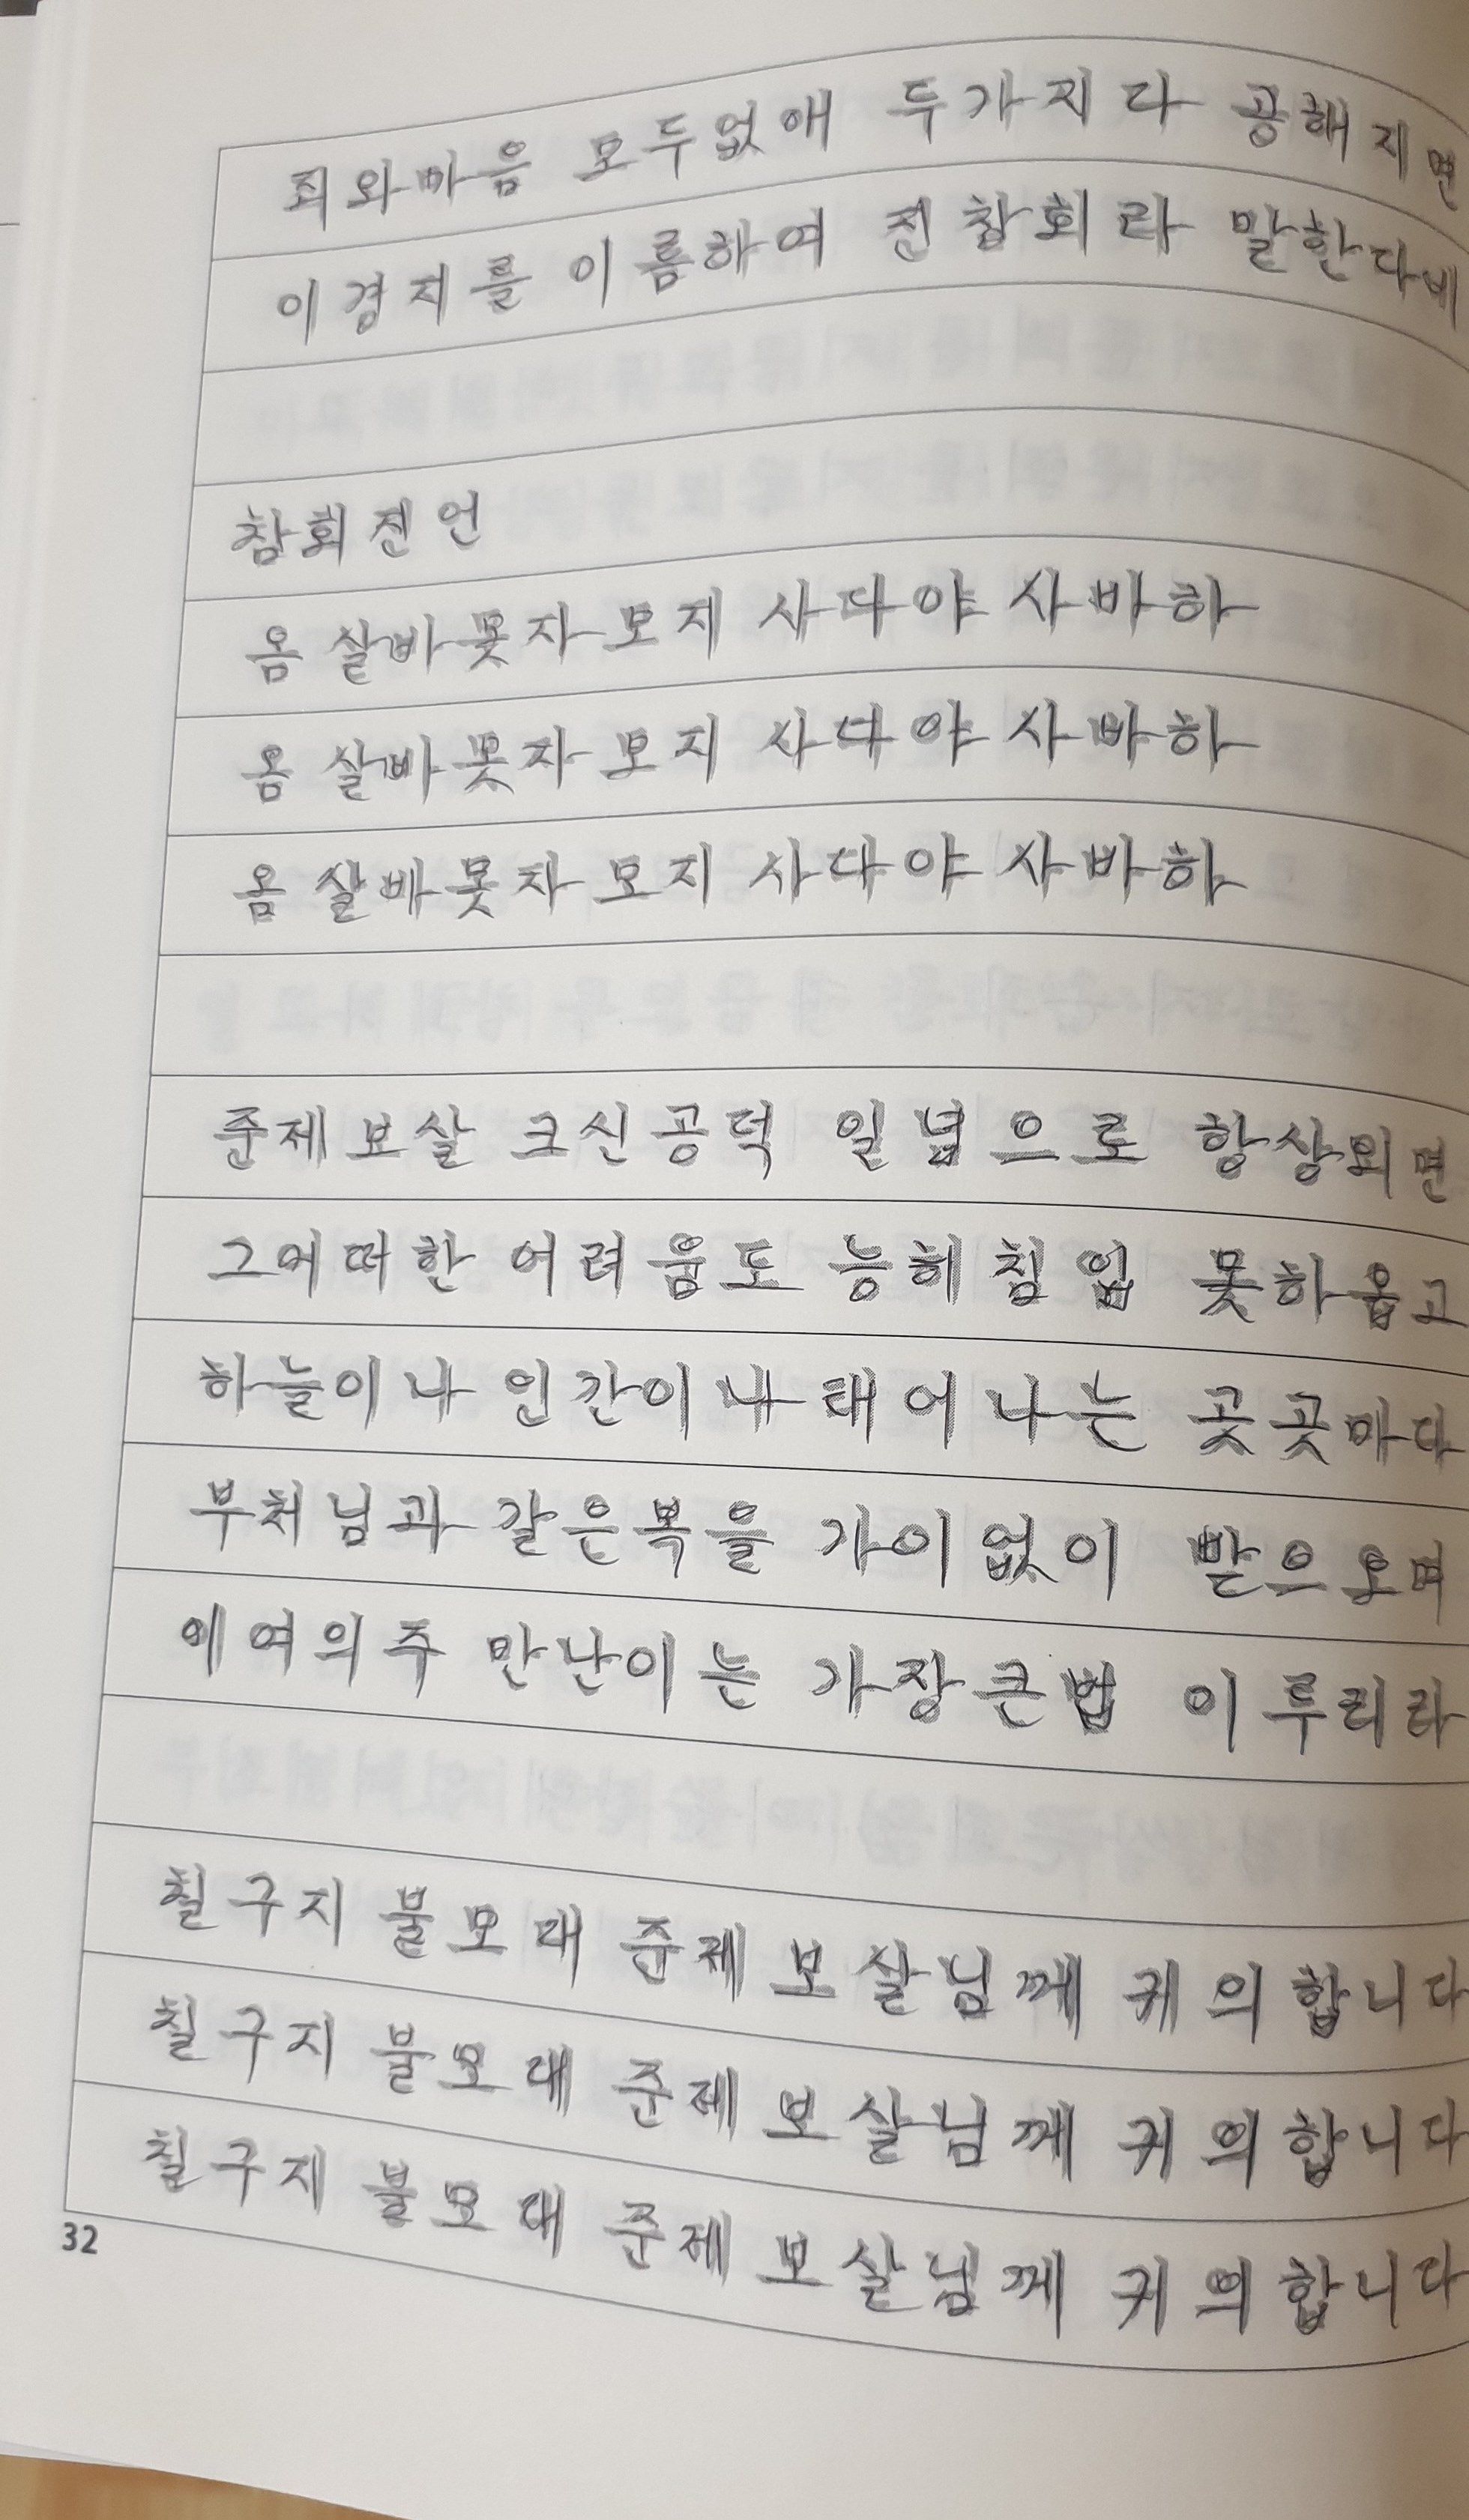 죄와마음 모두없애 두가지다 공해지면
이경지를 이름하여 진참회라 말한다네
참회진언
옴 살바못자모지 사다야 사바하
옴 살바못자모지 사다야 사바하
옴 살바못자모지 사다야 사바하
준제보살 크신공덕 일념으로 항상외면
그어떠한 어려움도 능히침입 못하옵고
하늘이나 인간이나 태어나는 곳곳마다
부처님과 같은복을 가이없이 받으오며
이여의주 만난이는 가장큰법 이루리라
칠구지 불모대 준제보살님께 귀의합니다
칠구지 불모대 준제보살님께 귀의합니다
칠구지 불모대 준제보살님께 귀의합니다
32